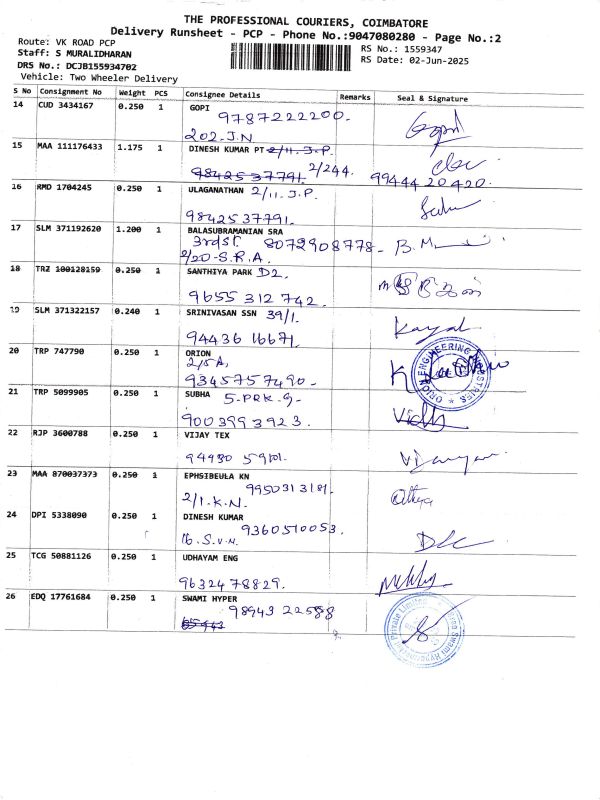 THE PROFESSIONAL COURIERS, COIMBATORE
Delivery Runsheet - PCP - Phone No.:9047080280 - Page No.:2
Route: VK ROAD PCP
Staff: S MURALIDHARAN
DRS No.: DCJB155934702
Vehicle: Two Wheeler Delivery
RS No.: 1559347
RS Date: 02-Jun-2025
S No Consignment No Weight PCS Consignee Details Remarks Seal & Signature
14 CUD 3434167 0.250 1 GOPI
9787222200.
202.J.N
Gopi
15 MAA 111176433 1.175 1 DINESH KUMAR PT 2/11.J.P.
9842537791. 2/244.
9944420420.
16 RMD 1704245 0.250 1 ULAGANATHAN 2/11.J.P.
9842537791.
17 SLM 371192620 1.200 1 BALASUBRAMANIAN SRA
3rd st. 8072908778-
2/20-S.R.A.
B.M
18 TRZ 100128159 0.250 1 SANTHIYA PARK D2.
9655 312 742.
19 SLM 371322157 0.240 1 SRINIVASAN SSN 39/1.
94436 16671.
Kayal
20 TRP 747790 0.250 1 ORION
2/5A,
9345757490-
ORION ENGINEERING INDUSTRIES
21 TRP 5099905 0.250 1 SUBHA
5-PRK.G-
9003993923.
22 RJP 3600788 0.250 1 VIJAY TEX
94430 59101.
23 MAA 870037373 0.250 1 EPHSIBEULA KN
9950313181.
2/1.K.N.
24 DPI 5338090 0.250 1 DINESH KUMAR
9360510053.
16.S.V.N.
25 TCG 50881126 0.250 1 UDHAYAM ENG
9632478829.
26 EDQ 17761684 0.250 1 SWAMI HYPER
98943 22588